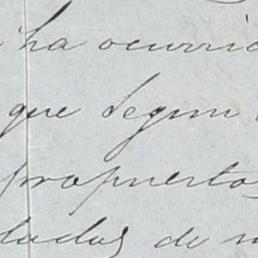 ha ocurrid
que segun
propuesto
dadas de